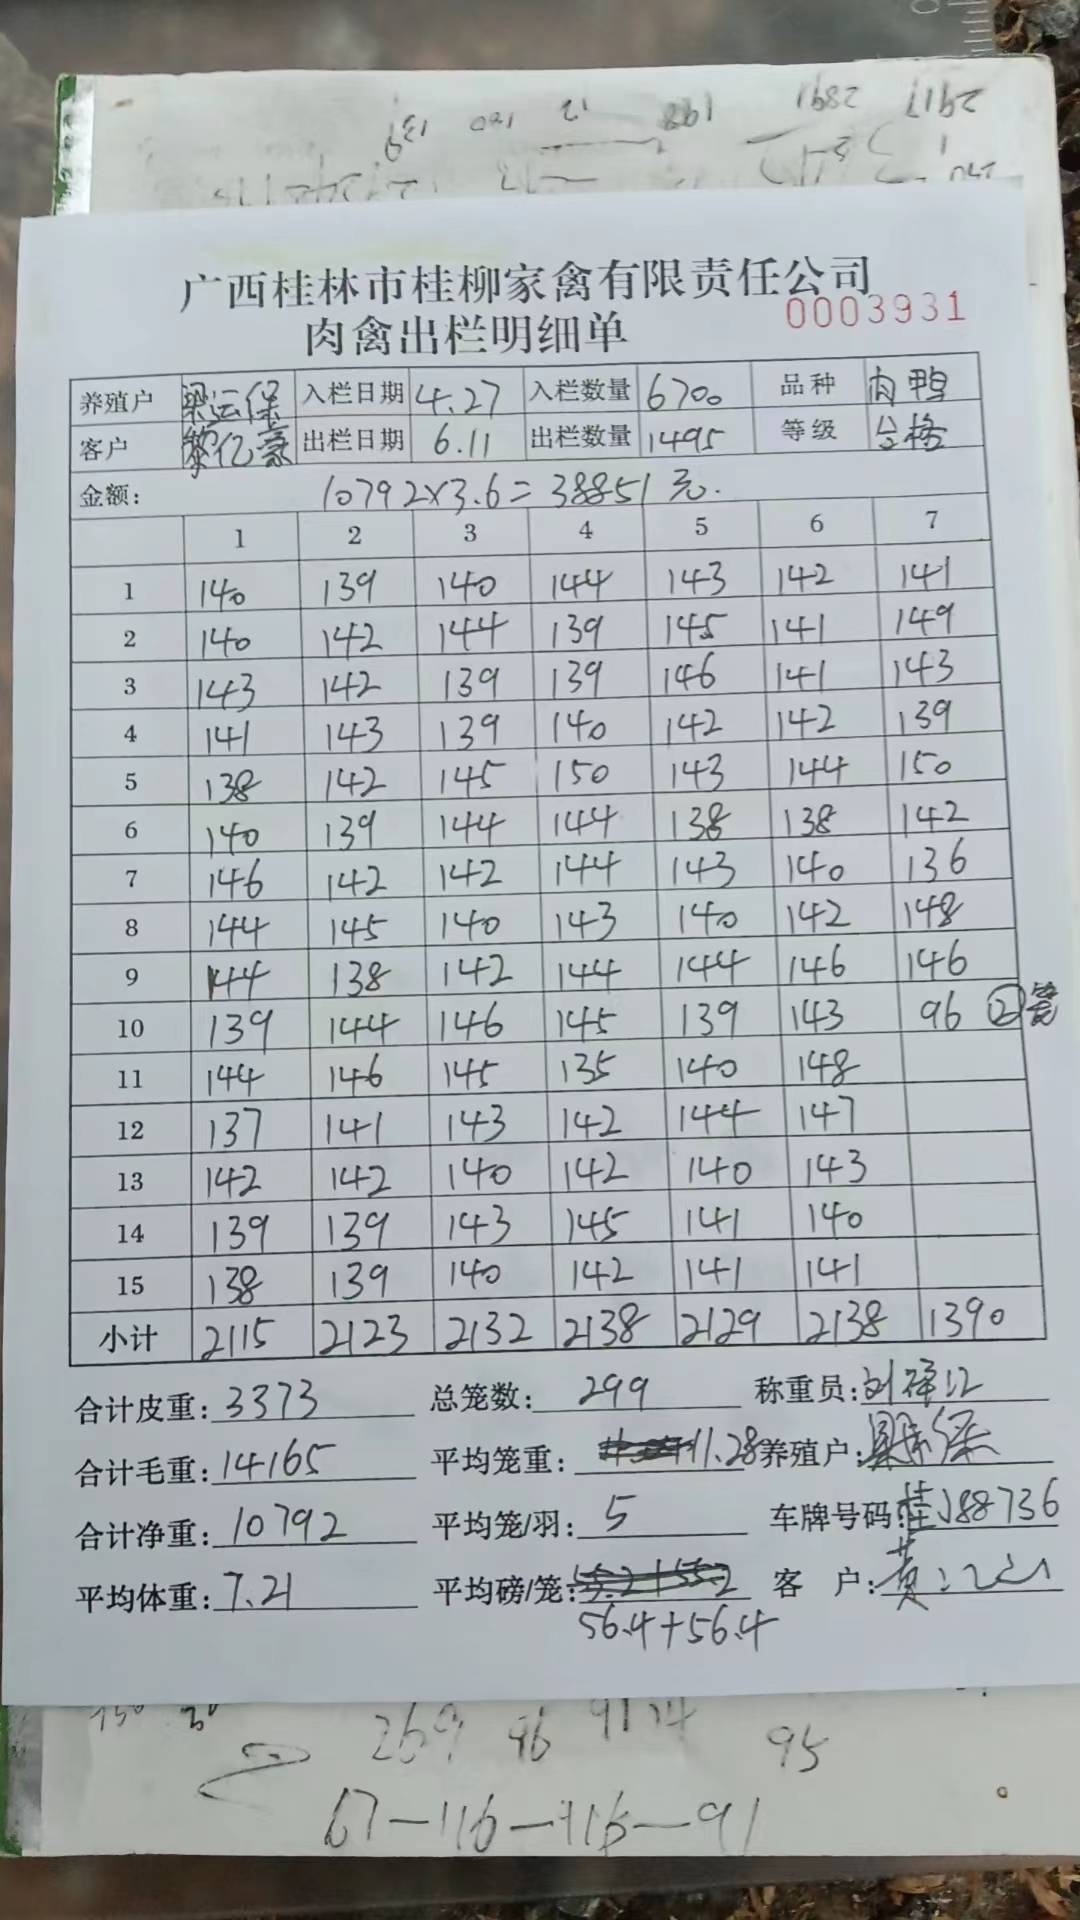 广西桂林市桂柳家禽有限责任公司
肉禽出栏明细单 0003931
养殖户 梁运保 入栏日期 4.27 入栏数量 6700 品种 肉鸭
客户 黎亿豪 出栏日期 6.11 出栏数量 1495 等级 合格
金额: 10792×3.6=38851元.
1 2 3 4 5 6 7
1 140 139 140 144 143 142 141
2 140 142 144 139 145 141 149
3 143 142 139 139 146 141 143
4 141 143 139 140 142 142 139
5 138 142 145 150 143 144 150
6 140 139 144 144 138 138 142
7 146 142 142 144 143 140 136
8 144 145 140 143 140 142 148
9 144 138 142 144 144 146 146
10 139 144 146 145 139 143 96 ② 笼
11 144 146 145 135 140 148
12 137 141 143 142 144 147
13 142 142 140 142 140 143
14 139 139 143 145 141 140
15 138 139 140 142 141 141
小计 2115 2123 2132 2138 2129 2138 1390
合计皮重: 3373 总笼数: 299 称重员: 刘
合计毛重: 14165 平均笼重: 11.28 养殖户:
合计净重: 10792 平均笼/羽: 5 车牌号码: 桂J88736
平均体重: 7.21 平均磅/笼: 客 户: 黄
56.4+56.4
269 46 95
67-116-116-91